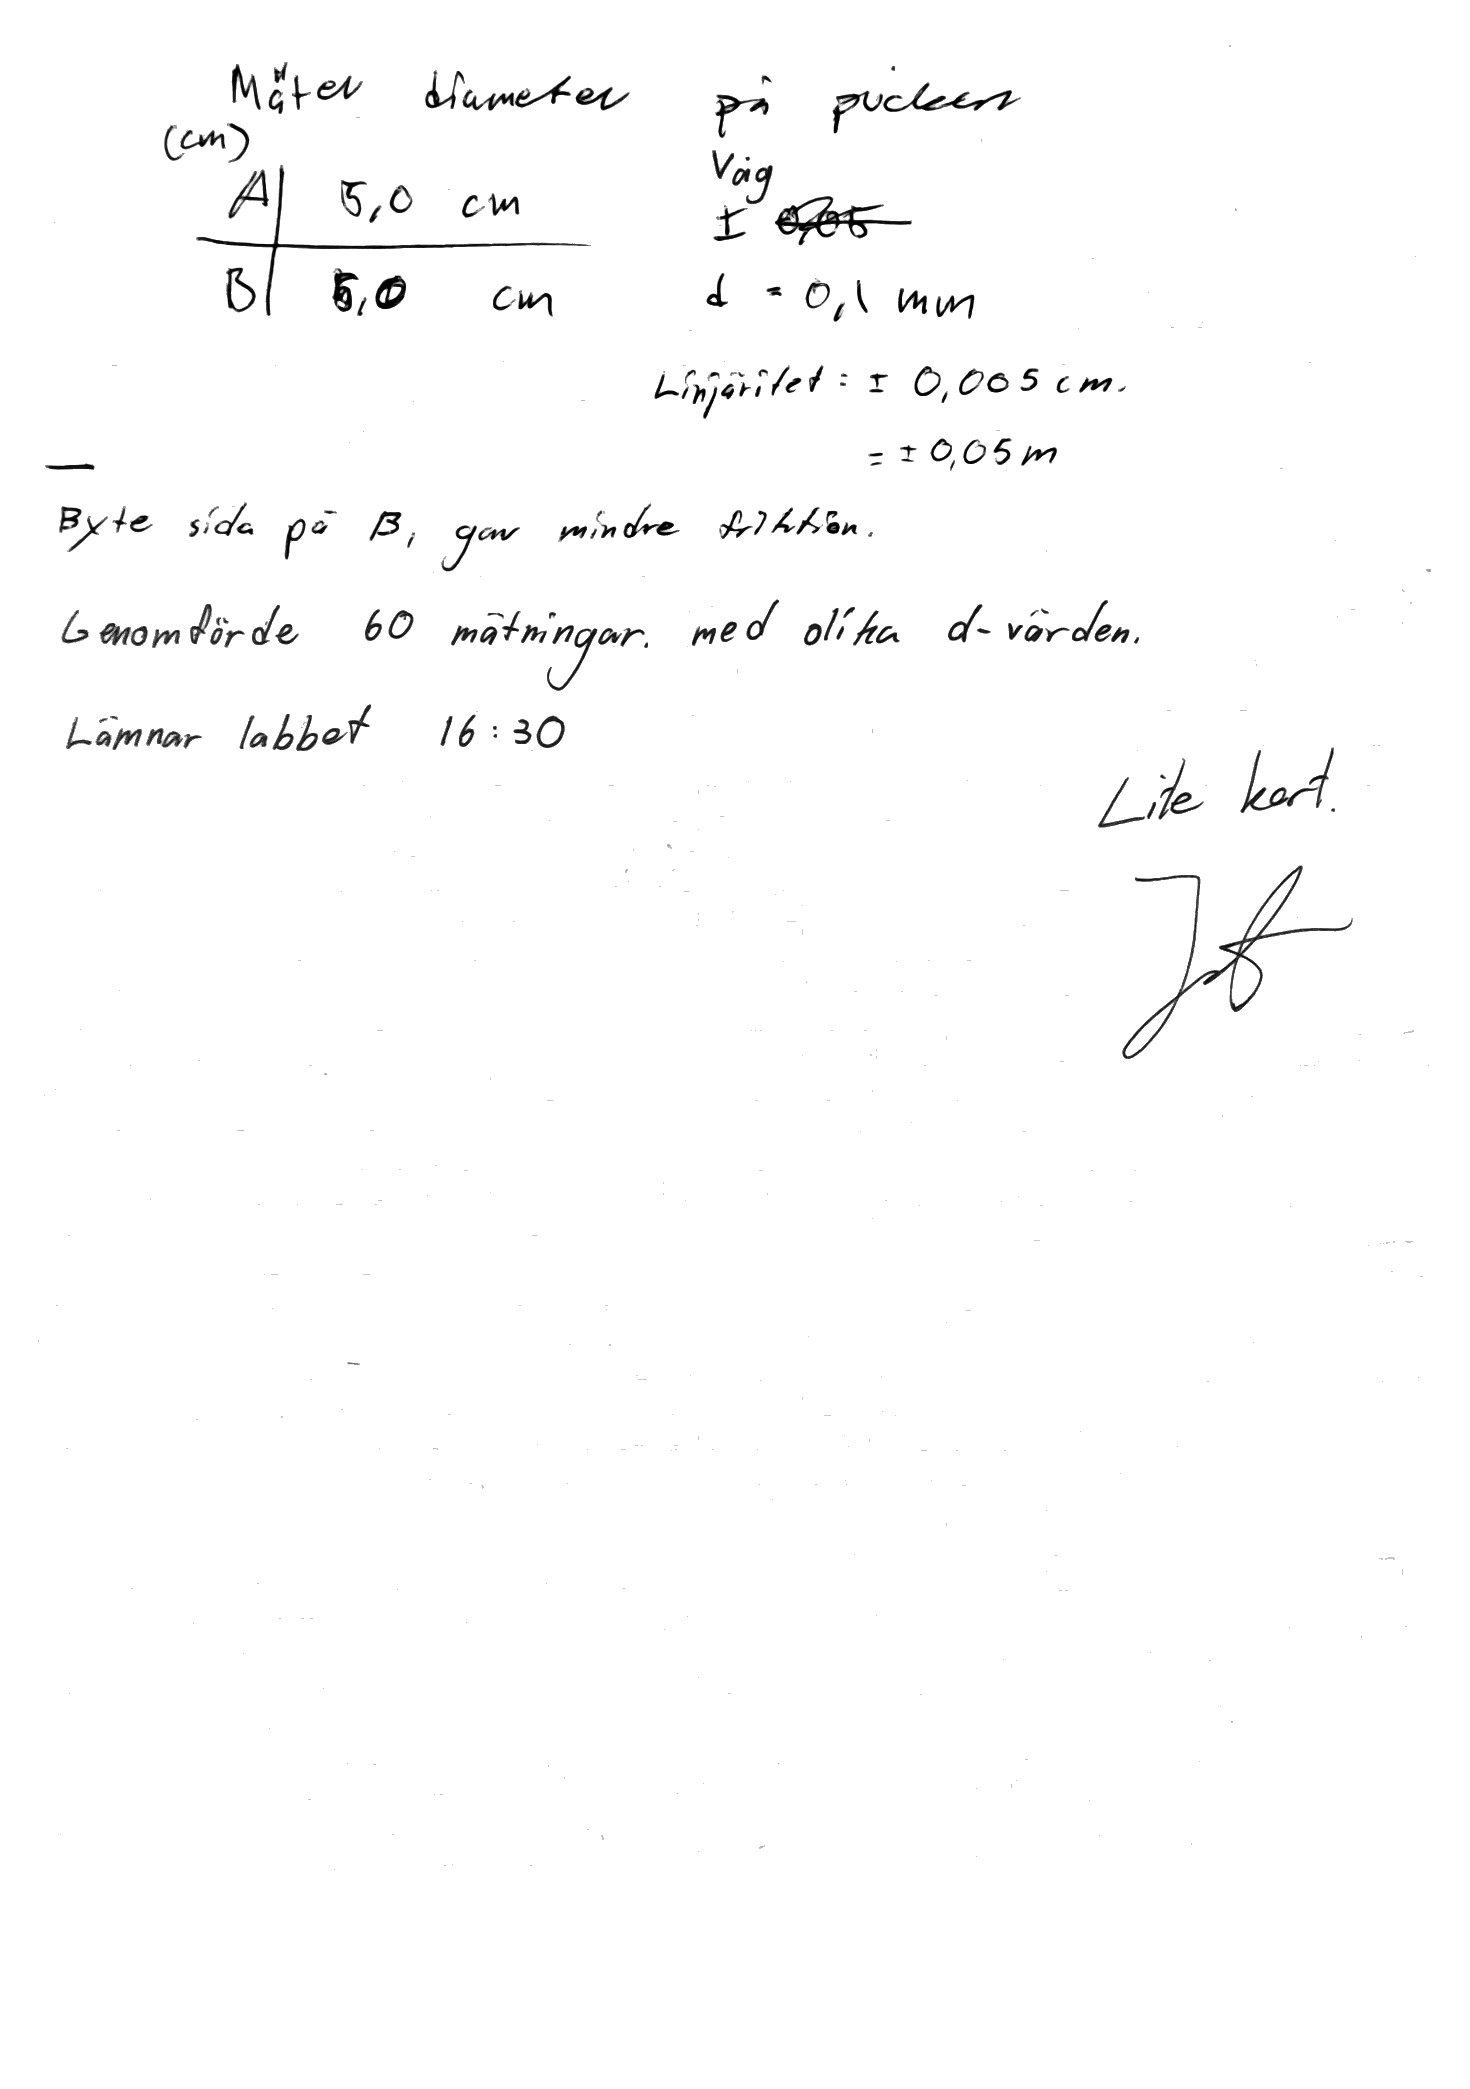 Mäter diameter på pucken
(cm)
Våg
A 5,0 cm
±
B 5,0 cm
d = 0,1 mm
Linjäritet: ± 0,005 cm.
= ± 0,05 m
Byte sida på B, gav mindre friktion.
Genomförde 60 mätningar. med olika d-värden.
Lämnar labbet 16:30
Lite kort.